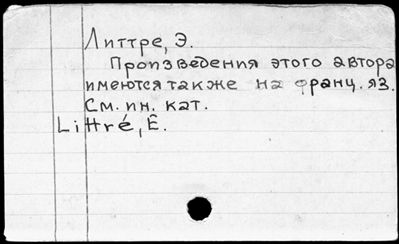 Литтре, Э.
Произведения этого автора
имеются также на франц. яз.
См. ин. кат.
Littré, É.